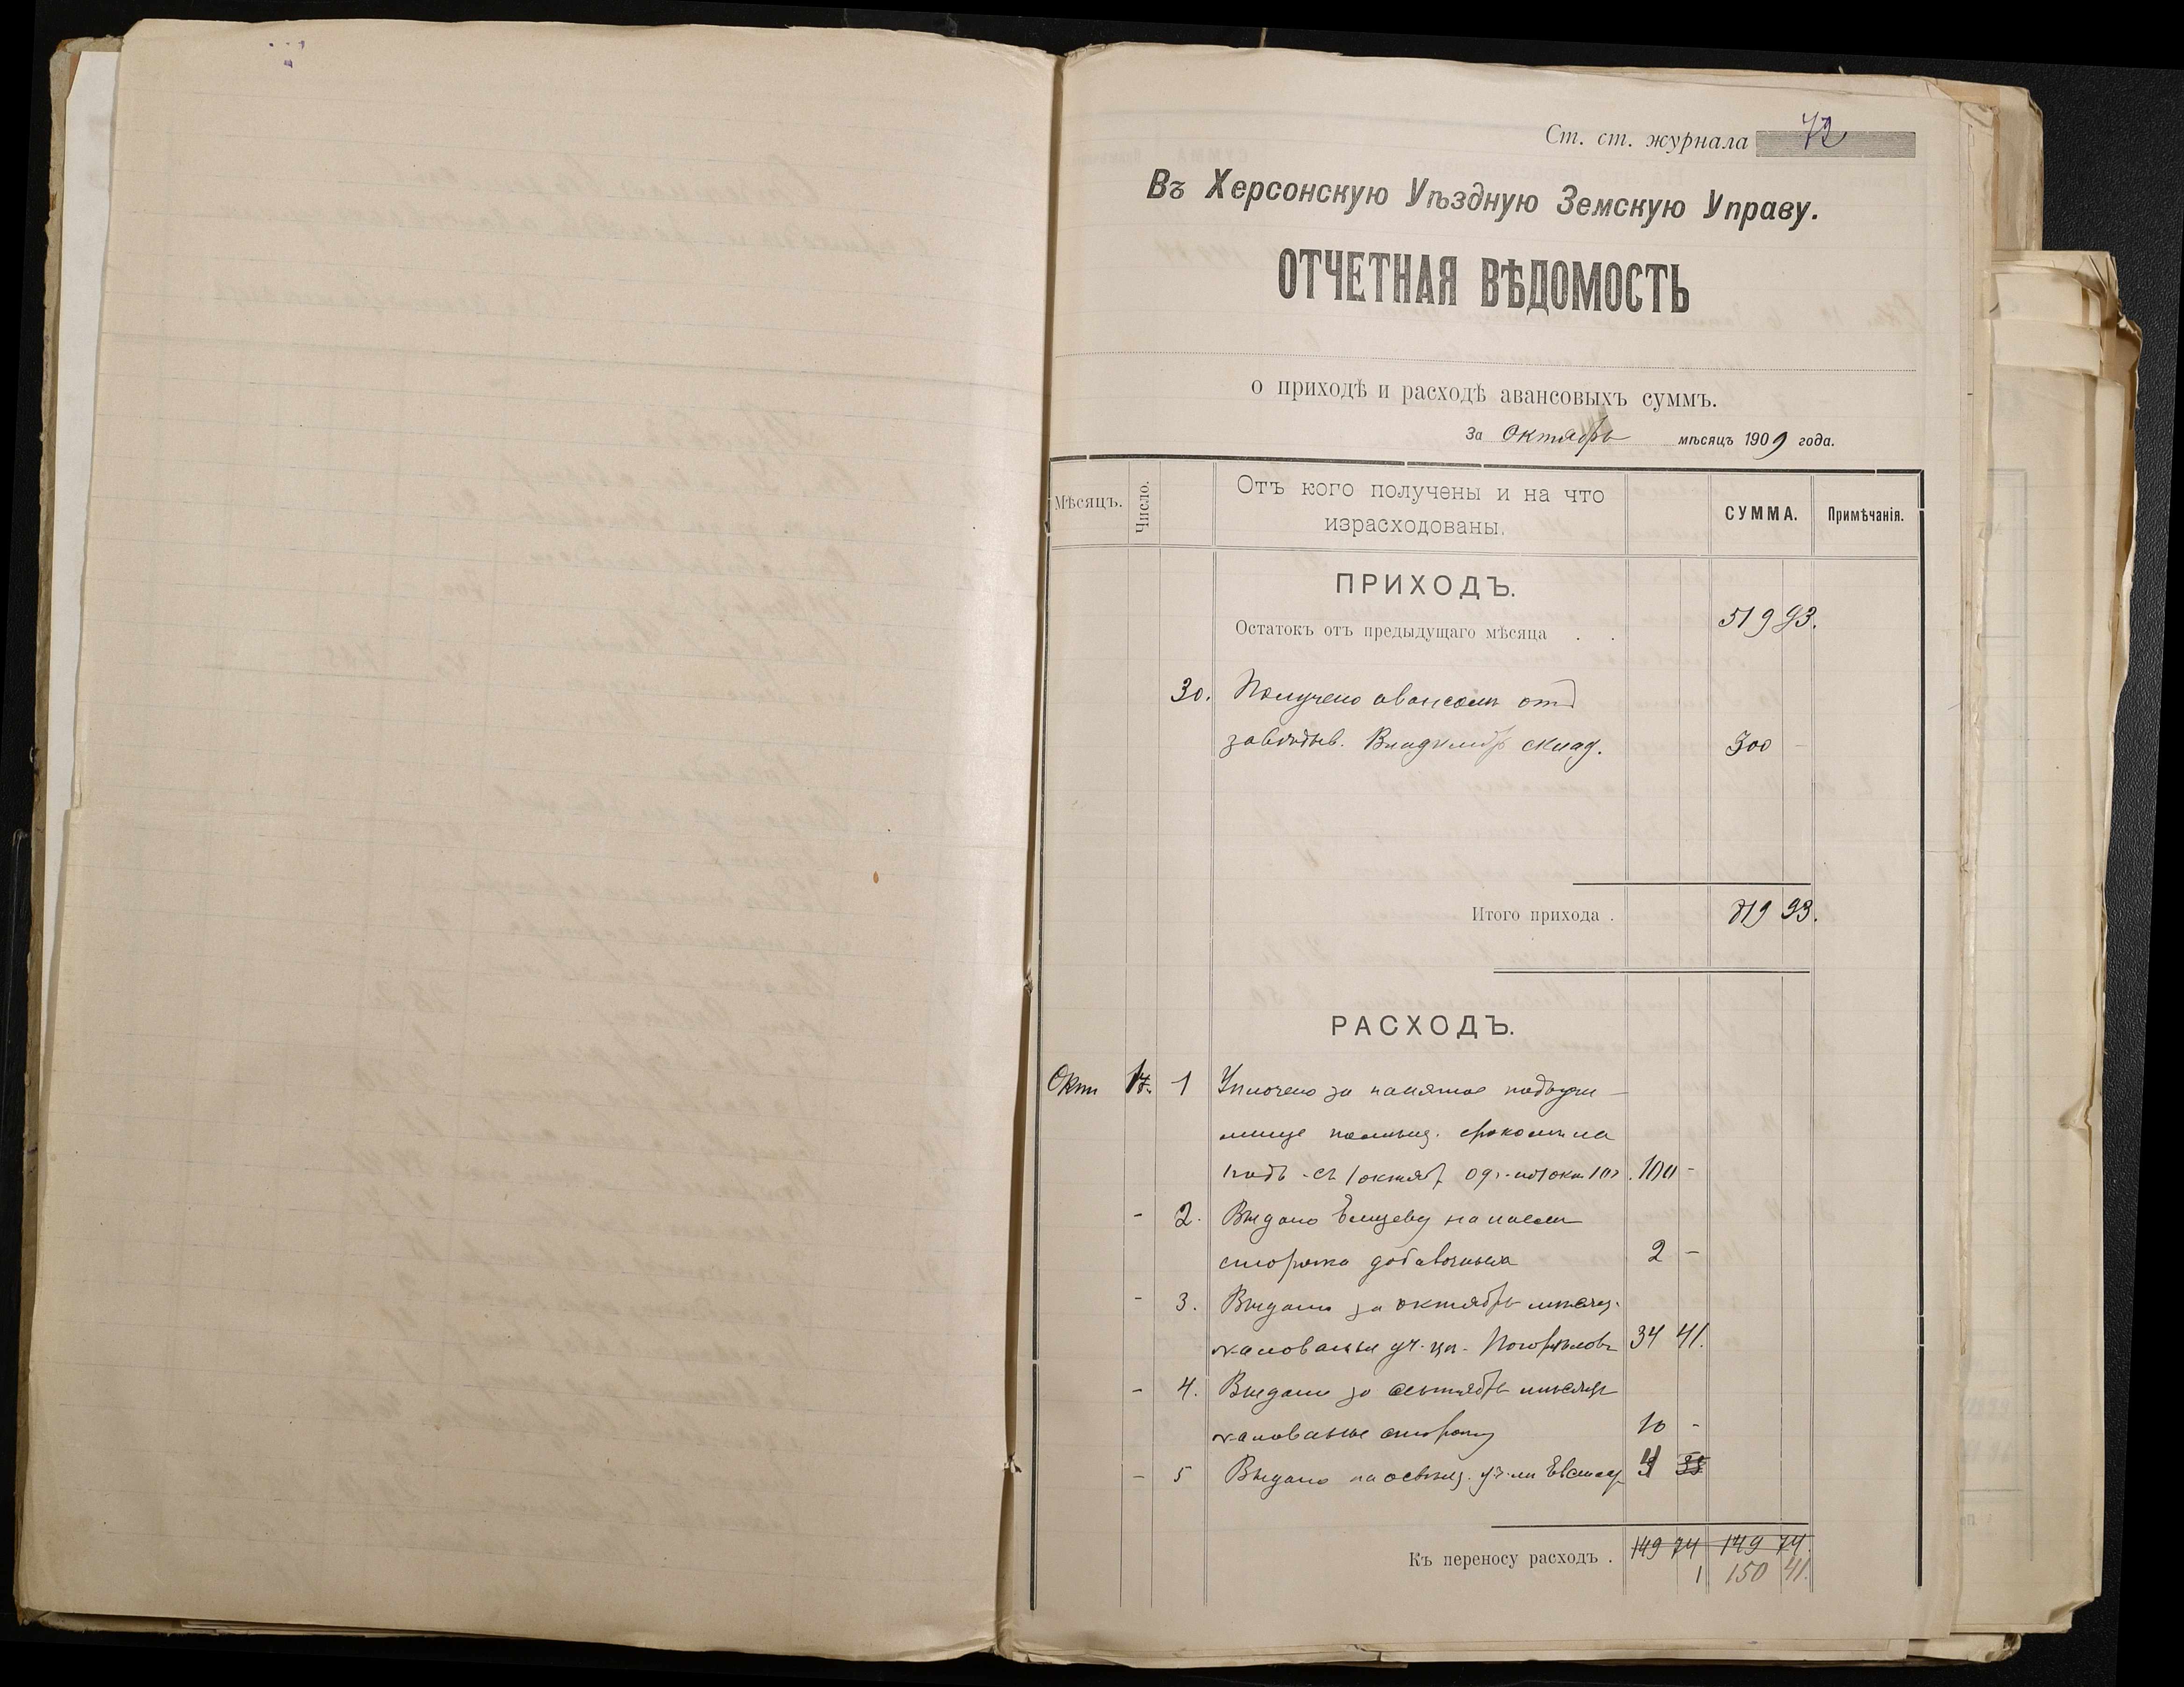 Ст. ст. журнала 72
Въ Херсонскую Уѣздную Земскую Управу.
ОТЧЕТНАЯ ВѢДОМОСТЬ
о приходѣ и расходѣ авансовыхъ суммъ.
За Октябрь мѣсяцъ 1909 года.
Мѣсяцъ. Число. Отъ кого получены и на что израсходованы. СУММА. Примѣчанія.
ПРИХОДЪ.
Остатокъ отъ предыдущаго мѣсяца . . 519 93.
30. Получено авансомъ отъ
завѣдыв. склад. 300 -
Итого прихода . 819 93.
РАСХОДЪ.
Окт 17. 1 Уплочено за нанятое
на
годъ - съ 1 октяб 09 г. 100 -
- 2. Выдано на наемъ
сторожа добавочныхъ 2 -
- 3. Выдано за октябрь мѣсяц.
жалованья уч-цѣ Погорѣловъ 34 41.
- 4. Выдано за октябрь мѣсяцъ
жалованье сторожу 10 -
- 5 Выдано на освѣщ. 4
Къ переносу расходъ . 149 74 149 74.
150 41.